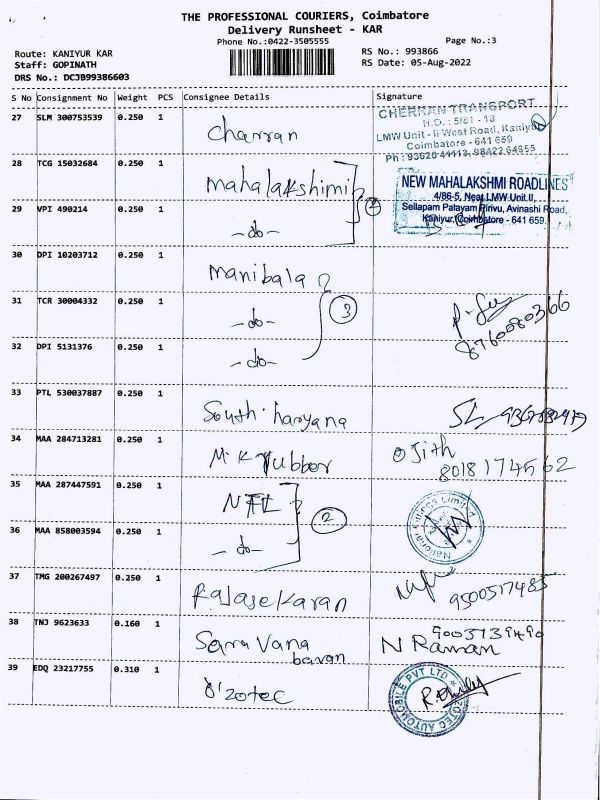 THE PROFESSIONAL COURIERS, Coimbatore
Delivery Runsheet - KAR
Phone No.:0422-3505555
Page No.:3
Route: KANIYUR KAR
RS No.: 993866
Staff: GOPINATH
RS Date: 05-Aug-2022
DRS No.: DCJB99386603
S No Consignment No Weight PCS Consignee Details Signature
27 SLM 300753539 0.250 1 Charran
CHERRAN TRANSPORT
H.O. : 5/81 - 18
LMW Unit - II West Road, Kaniyur
Coimbatore - 641 659
Ph : 93620 41113, 98422 64955
28 TCG 15032684 0.250 1 Mahalakshimi
29 VPI 490214 0.250 1 -do- 2
NEW MAHALAKSHMI ROADLINES
4/86-5, Near LMW Unit II,
Sellapam Palayam Pirivu, Avinashi Road,
Kaniyur, Coimbatore - 641 659.
30 DPI 10203712 0.250 1 Manibala
31 TCR 30004332 0.250 1 -do- 3
8760080366
32 DPI 5131376 0.250 1 -do-
33 PTL 530037887 0.250 1 South. haryana
34 MAA 284713281 0.250 1 M.K Rubber Ojith
8018174562
35 MAA 287447591 0.250 1 NFL 2
36 MAA 858003594 0.250 1 -do-
National Fittings Limited
37 TMG 200267497 0.250 1 Rajasekaran 9500517485
38 TNJ 9623633 0.160 1 Saravana bavan
N Raman
39 EDQ 23217755 0.310 1 O'zotec
OZOTEC AUTOMOBILE PVT LTD